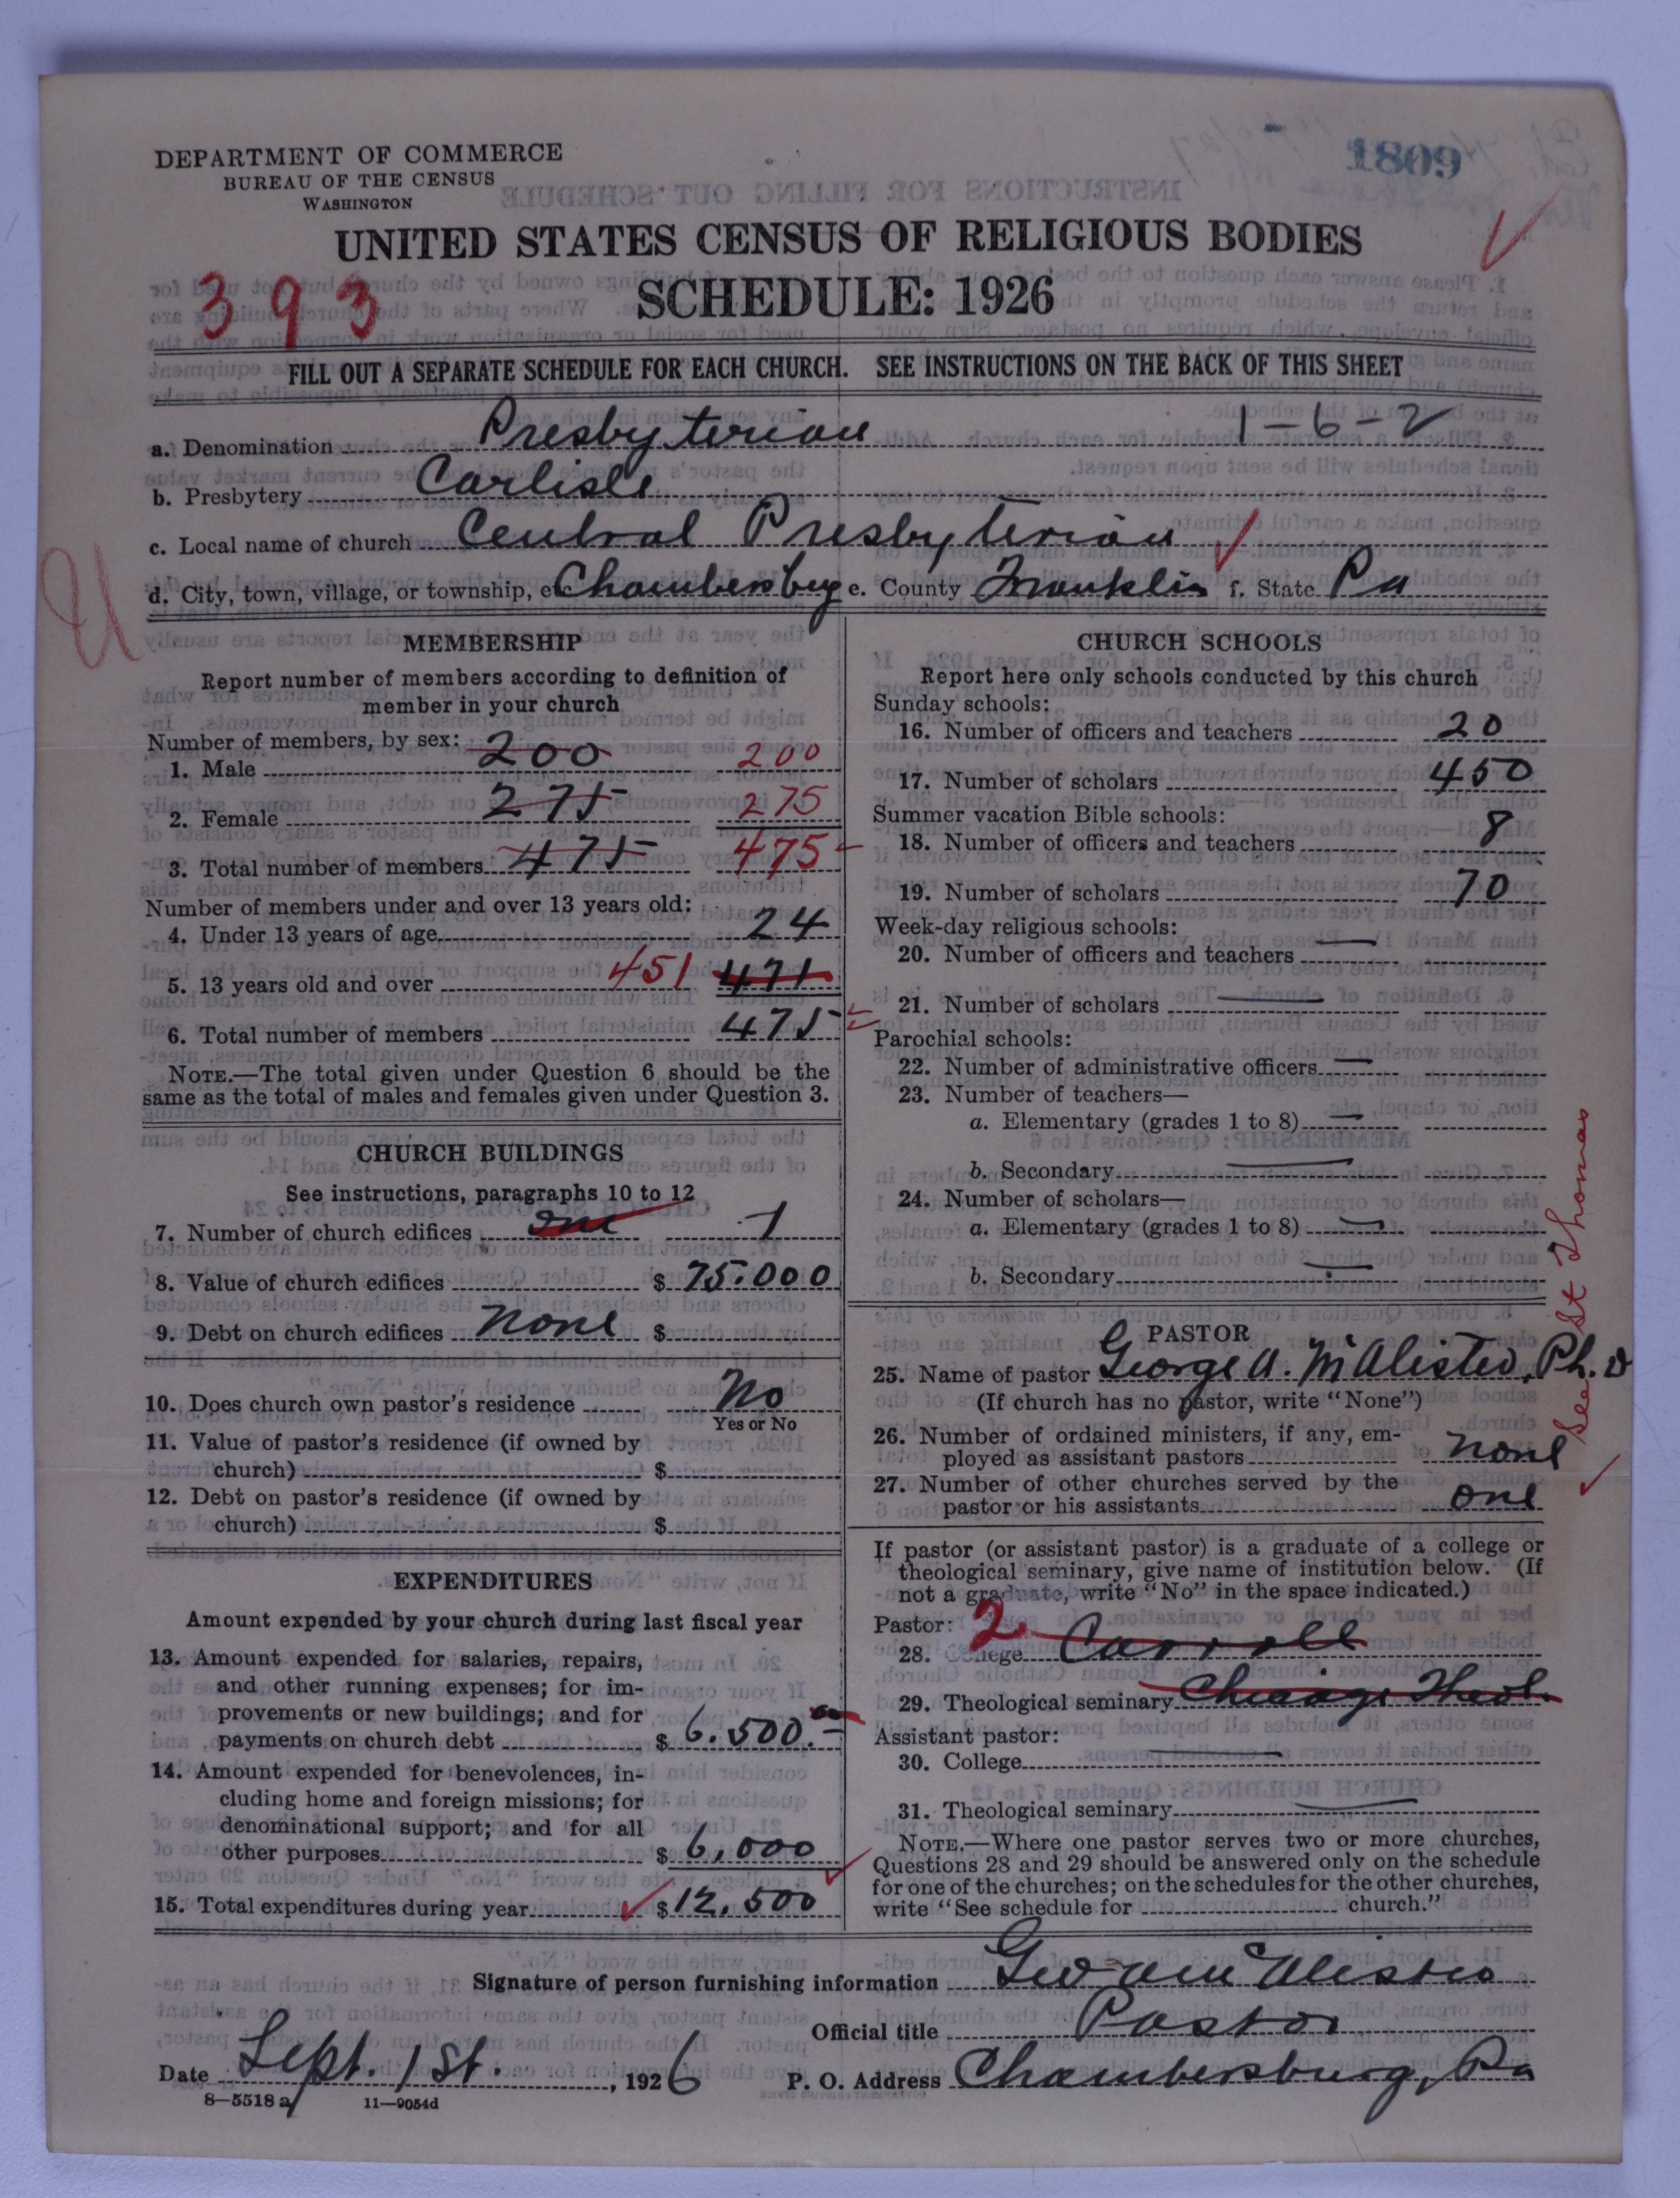 DEPARTMENT OF COMMERCE
BUREAU OF THE CENSUS
WASHINGTON
1809
UNITED STATES CENSUS OF RELIGIOUS BODIES
393
SCHEDULE: 1926
FILL OUT A SEPARATE SCHEDULE FOR EACH CHURCH. SEE INSTRUCTIONS ON THE BACK OF THIS SHEET
a. Denomination Presbyterian 1-6-2
b. Presbytery Carlisle
c. Local name of church Central Presbyterian
d. City, town, village, or township, etc Chambersburg e. County Franklin f. State Pa
MEMBERSHIP
Report number of members according to definition of
member in your church
Number of members, by sex:
1. Male 200 200
2. Female 275 275
3. Total number of members 475 475
Number of members under and over 13 years old:
4. Under 13 years of age 24
5. 13 years old and over 451 471
6. Total number of members 475
NOTE.—The total given under Question 6 should be the
same as the total of males and females given under Question 3.
CHURCH BUILDINGS
See instructions, paragraphs 10 to 12
7. Number of church edifices one 1
8. Value of church edifices $ 75.000
9. Debt on church edifices None $
10. Does church own pastor's residence No
Yes or No
11. Value of pastor's residence (if owned by
church) $
12. Debt on pastor's residence (if owned by
church) $
EXPENDITURES
Amount expended by your church during last fiscal year
13. Amount expended for salaries, repairs,
and other running expenses; for im-
provements or new buildings; and for
payments on church debt $ 6.500.00
14. Amount expended for benevolences, in-
cluding home and foreign missions; for
denominational support; and for all
other purposes $ 6,000
15. Total expenditures during year $ 12,500
CHURCH SCHOOLS
Report here only schools conducted by this church
Sunday schools:
16. Number of officers and teachers 20
17. Number of scholars 450
Summer vacation Bible schools:
18. Number of officers and teachers 8
19. Number of scholars 70
Week-day religious schools:
20. Number of officers and teachers —
21. Number of scholars —
Parochial schools:
22. Number of administrative officers —
23. Number of teachers—
a. Elementary (grades 1 to 8) —
b. Secondary —
24. Number of scholars—
a. Elementary (grades 1 to 8) —
b. Secondary —
PASTOR
25. Name of pastor George A. McAlister, Ph. D
(If church has no pastor, write "None")
26. Number of ordained ministers, if any, em-
ployed as assistant pastors none
27. Number of other churches served by the
pastor or his assistants one
See St Thomas
If pastor (or assistant pastor) is a graduate of a college or
theological seminary, give name of institution below. (If
not a graduate, write "No" in the space indicated.)
Pastor: 2
28. College Carroll
29. Theological seminary Chicago Theol.
Assistant pastor:
30. College —
31. Theological seminary —
NOTE.—Where one pastor serves two or more churches,
Questions 28 and 29 should be answered only on the schedule
for one of the churches; on the schedules for the other churches,
write "See schedule for church."
Signature of person furnishing information Geo A McAlister
Official title Pastor
Date Sept. 1st. , 1926 P. O. Address Chambersburg, Pa
8—5518 a 11—9054d